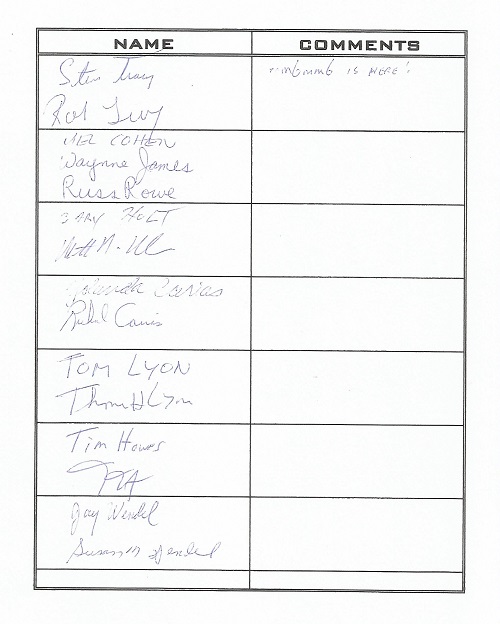 NAME COMMENTS
Steve Tracy IS HERE!
Rob Levy
MEL COHEN
Waynne James
Russ Rowe
GARY HOLT
Matt
Yolanda
TOM LYON
Thomas H Lyon
Tim Howes
Jay Wendel
Susan M Wendel